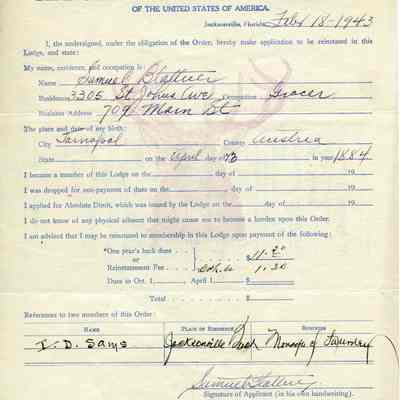 OF THE UNITED STATES OF AMERICA.
Jacksonville, Florida, Feby 18-1943
I, the undersigned, under the obligation of the Order, hereby make application to be reinstated in this
Lodge, and state:
My name, residence, and occupation is:
Name Samuel Blattner
Residence 3305 St. Johns Ave Occupation Grocer
Business Address 709 Main St
The place and date of my birth:
City Tarnopol County Austria
State on the April day of in year 1884
I became a member of this Lodge on the day of 19
I was dropped for non-payment of dues on the day of 19
I applied for Absolute Dimit, which was issued by the Lodge on the day of 19
I do not know of any physical ailment that might cause me to become a burden upon this Order.
I am advised that I may be reinstated to membership in this Lodge upon payment of the following:
*One year's back dues $ 11.20
or
Reinstatement Fee 1.30
Dues to Oct. 1 April 1 $
Total $
References to two members of this Order:
NAME PLACE OF RESIDENCE BUSINESS
I. D. Sams Jacksonville Manager of Laundry
Samuel Blattner
Signature of Applicant (in his own handwriting).